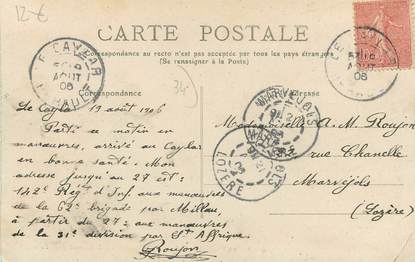 12 €
CARTE POSTALE
La Correspondance au recto n'est pas acceptée par tous les pays étrangers
(Se renseigner à la Poste)
Correspondance
Adresse
34
LE CAYLAR
AOUT
06
HERAULT
LE CAYLAR
AOUT
06
MARVEJOLS
LOZERE
MARVEJOLS
LOZERE
Le Caylar 19 août 1906
Parti ce matin en
manœuvres, arrivé au Caylar
en bonne santé. Mon
adresse jusqu'au 27 est:
142e Régt d'Inf. aux manœuvres
de la 62e brigade par Millau,
à partir du 27: aux manœuvres
de la 31e division par St Affrique.
Roujon
Mademoiselle A. Roujon
rue Chanelle
Marvejols
(Lozère)